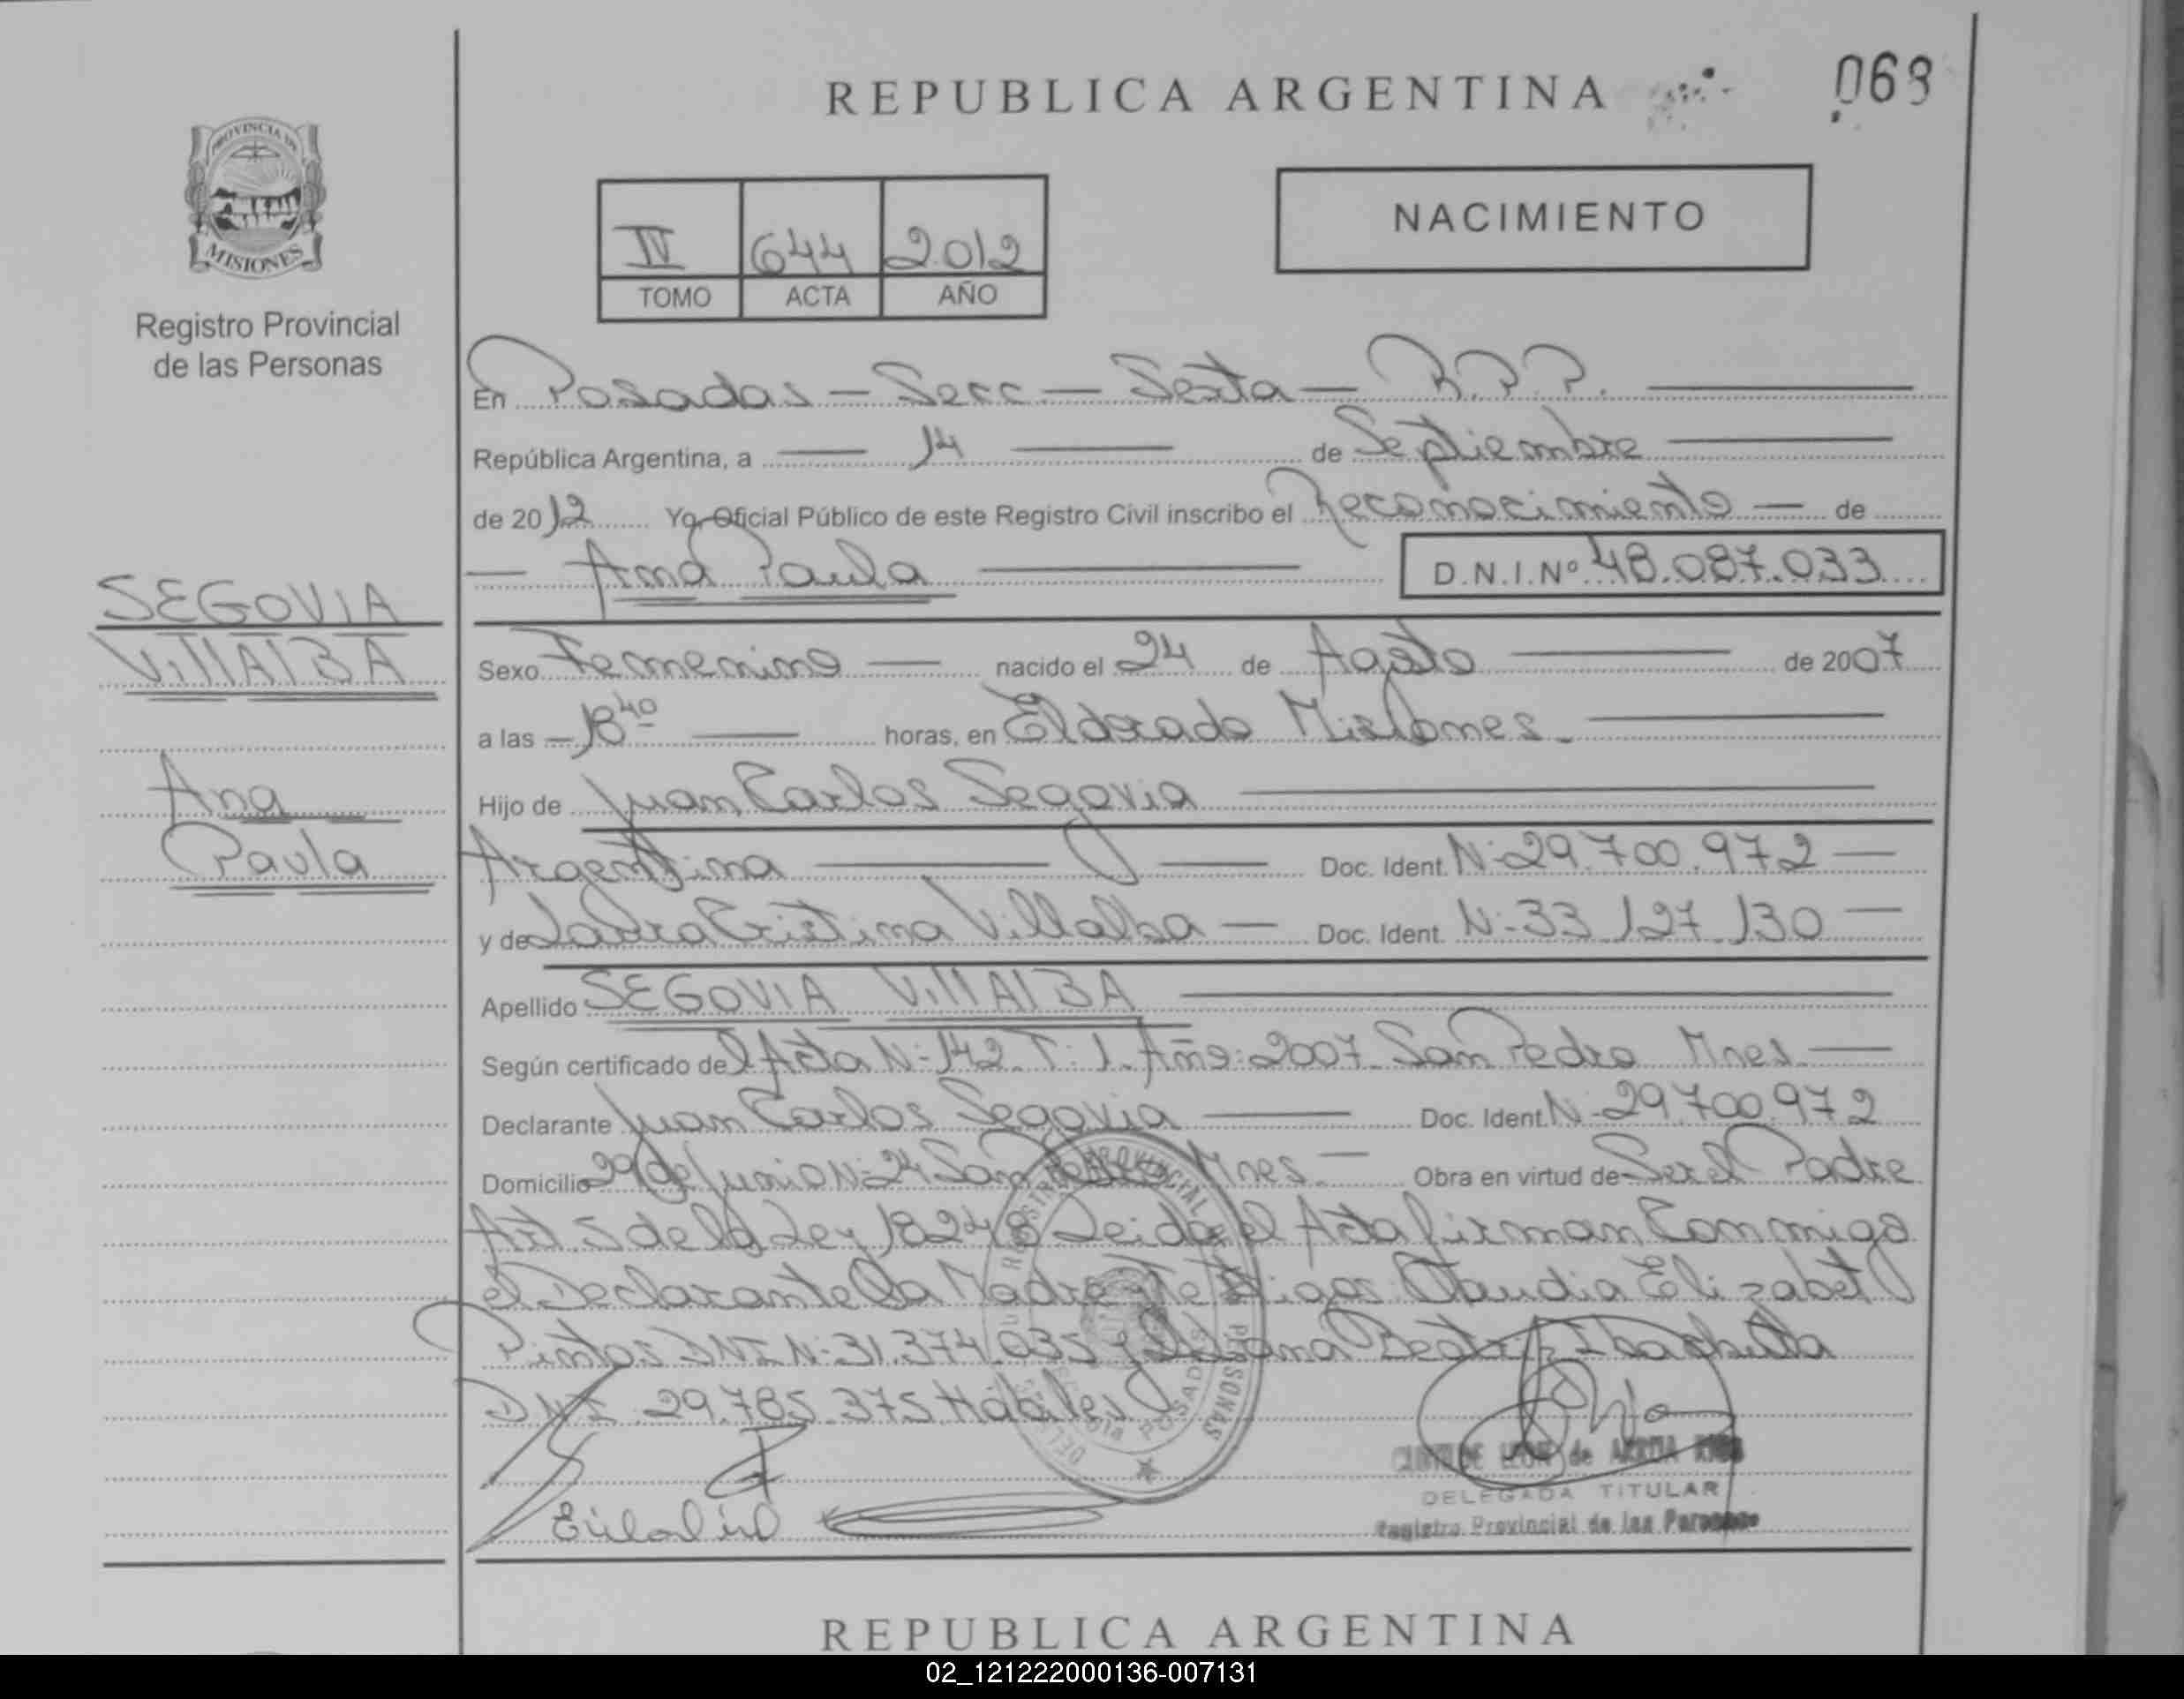 REPUBLICA ARGENTINA
069
PROVINCIA DE
MISIONES
Registro Provincial
de las Personas
IV 644 2012
TOMO ACTA AÑO
NACIMIENTO
En Posadas - Secc - Sexta - R.P.P.
República Argentina, a 14 de Septiembre
de 2012 Yo, Oficial Público de este Registro Civil inscribo el Reconocimiento - de
Ana Paula D.N.I.Nº 48.087.033
SEGOVIA
VillAlBA
Ana
Paula
Sexo Femenino nacido el 24 de Agosto de 2007
a las 18 40 horas, en Eldorado Misiones.
Hijo de Juan Carlos Segovia
Argentina Doc. Ident. N: 29.700.972
y de Cristina Villalba Doc. Ident. N: 33 127 130
Apellido SEGOVIA VillAlBA
Según certificado del Acta N: 142. T: 1. Año: 2007. San Pedro Mnes.
Declarante Juan Carlos Segovia Doc. Ident. N: 29.700.972
Domicilio 29 de Junio N: 24 San Pedro Mnes. Obra en virtud de Ser el Padre
Art 5 de la Ley 18248 Leida el Acta firman Conmigo
el Declarante la Madre Testigos Claudia Elizabet
Pintos DNI N: 31.374.035 y Beatriz
DNI 29.785.375 Hábiles
de
DELEGADA TITULAR
Registro Provincial de las Personas
REPUBLICA ARGENTINA
02_121222000136-007131